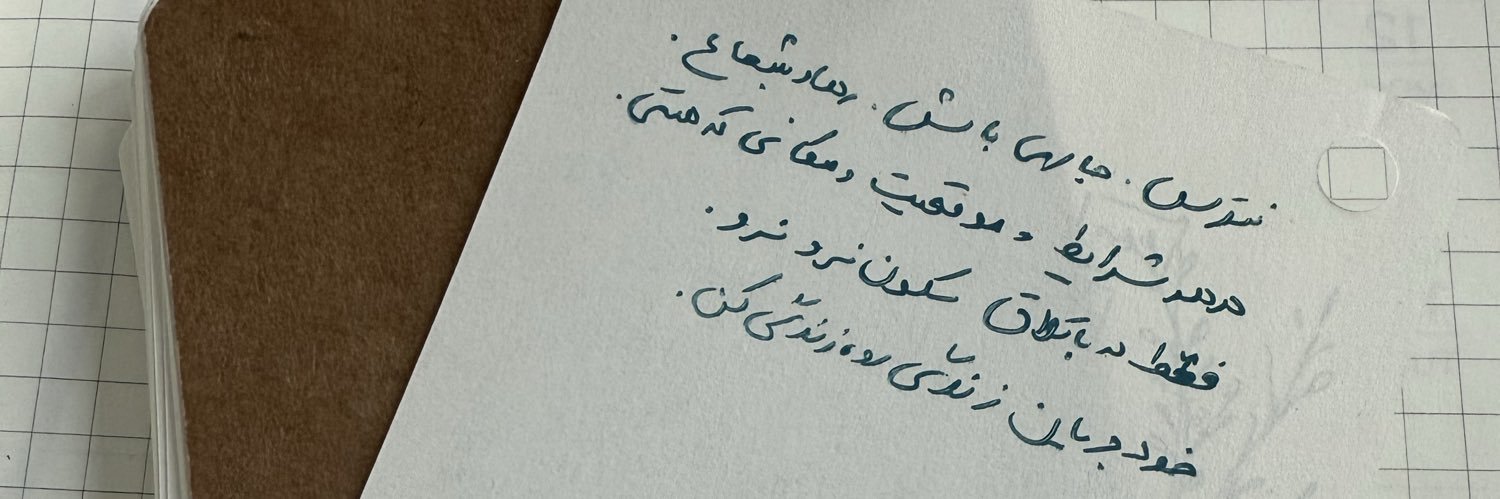 نترس. جاری باش. رها و شجاع.
در هر شرایط و موقعیت و مکانی که هستی.
فقط به باتلاق سکون فرو نرو.
خود جریان زندگی رو، زندگی کن.